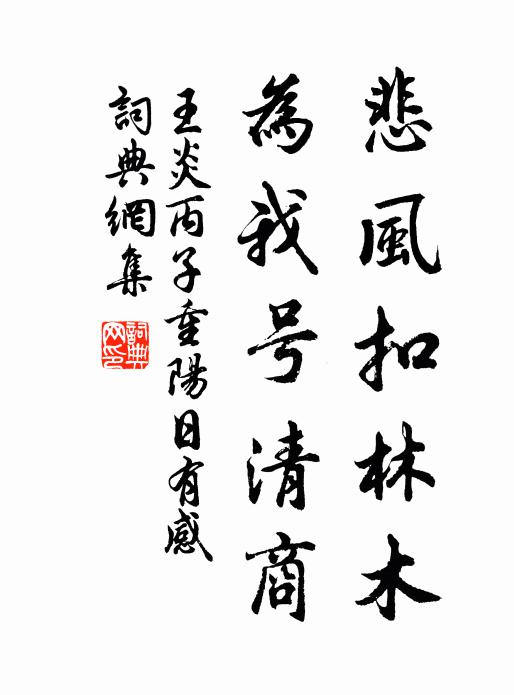 悲風扣林木
為我号清商
王炎丙子重陽日有感
詞典網集
詞典网印